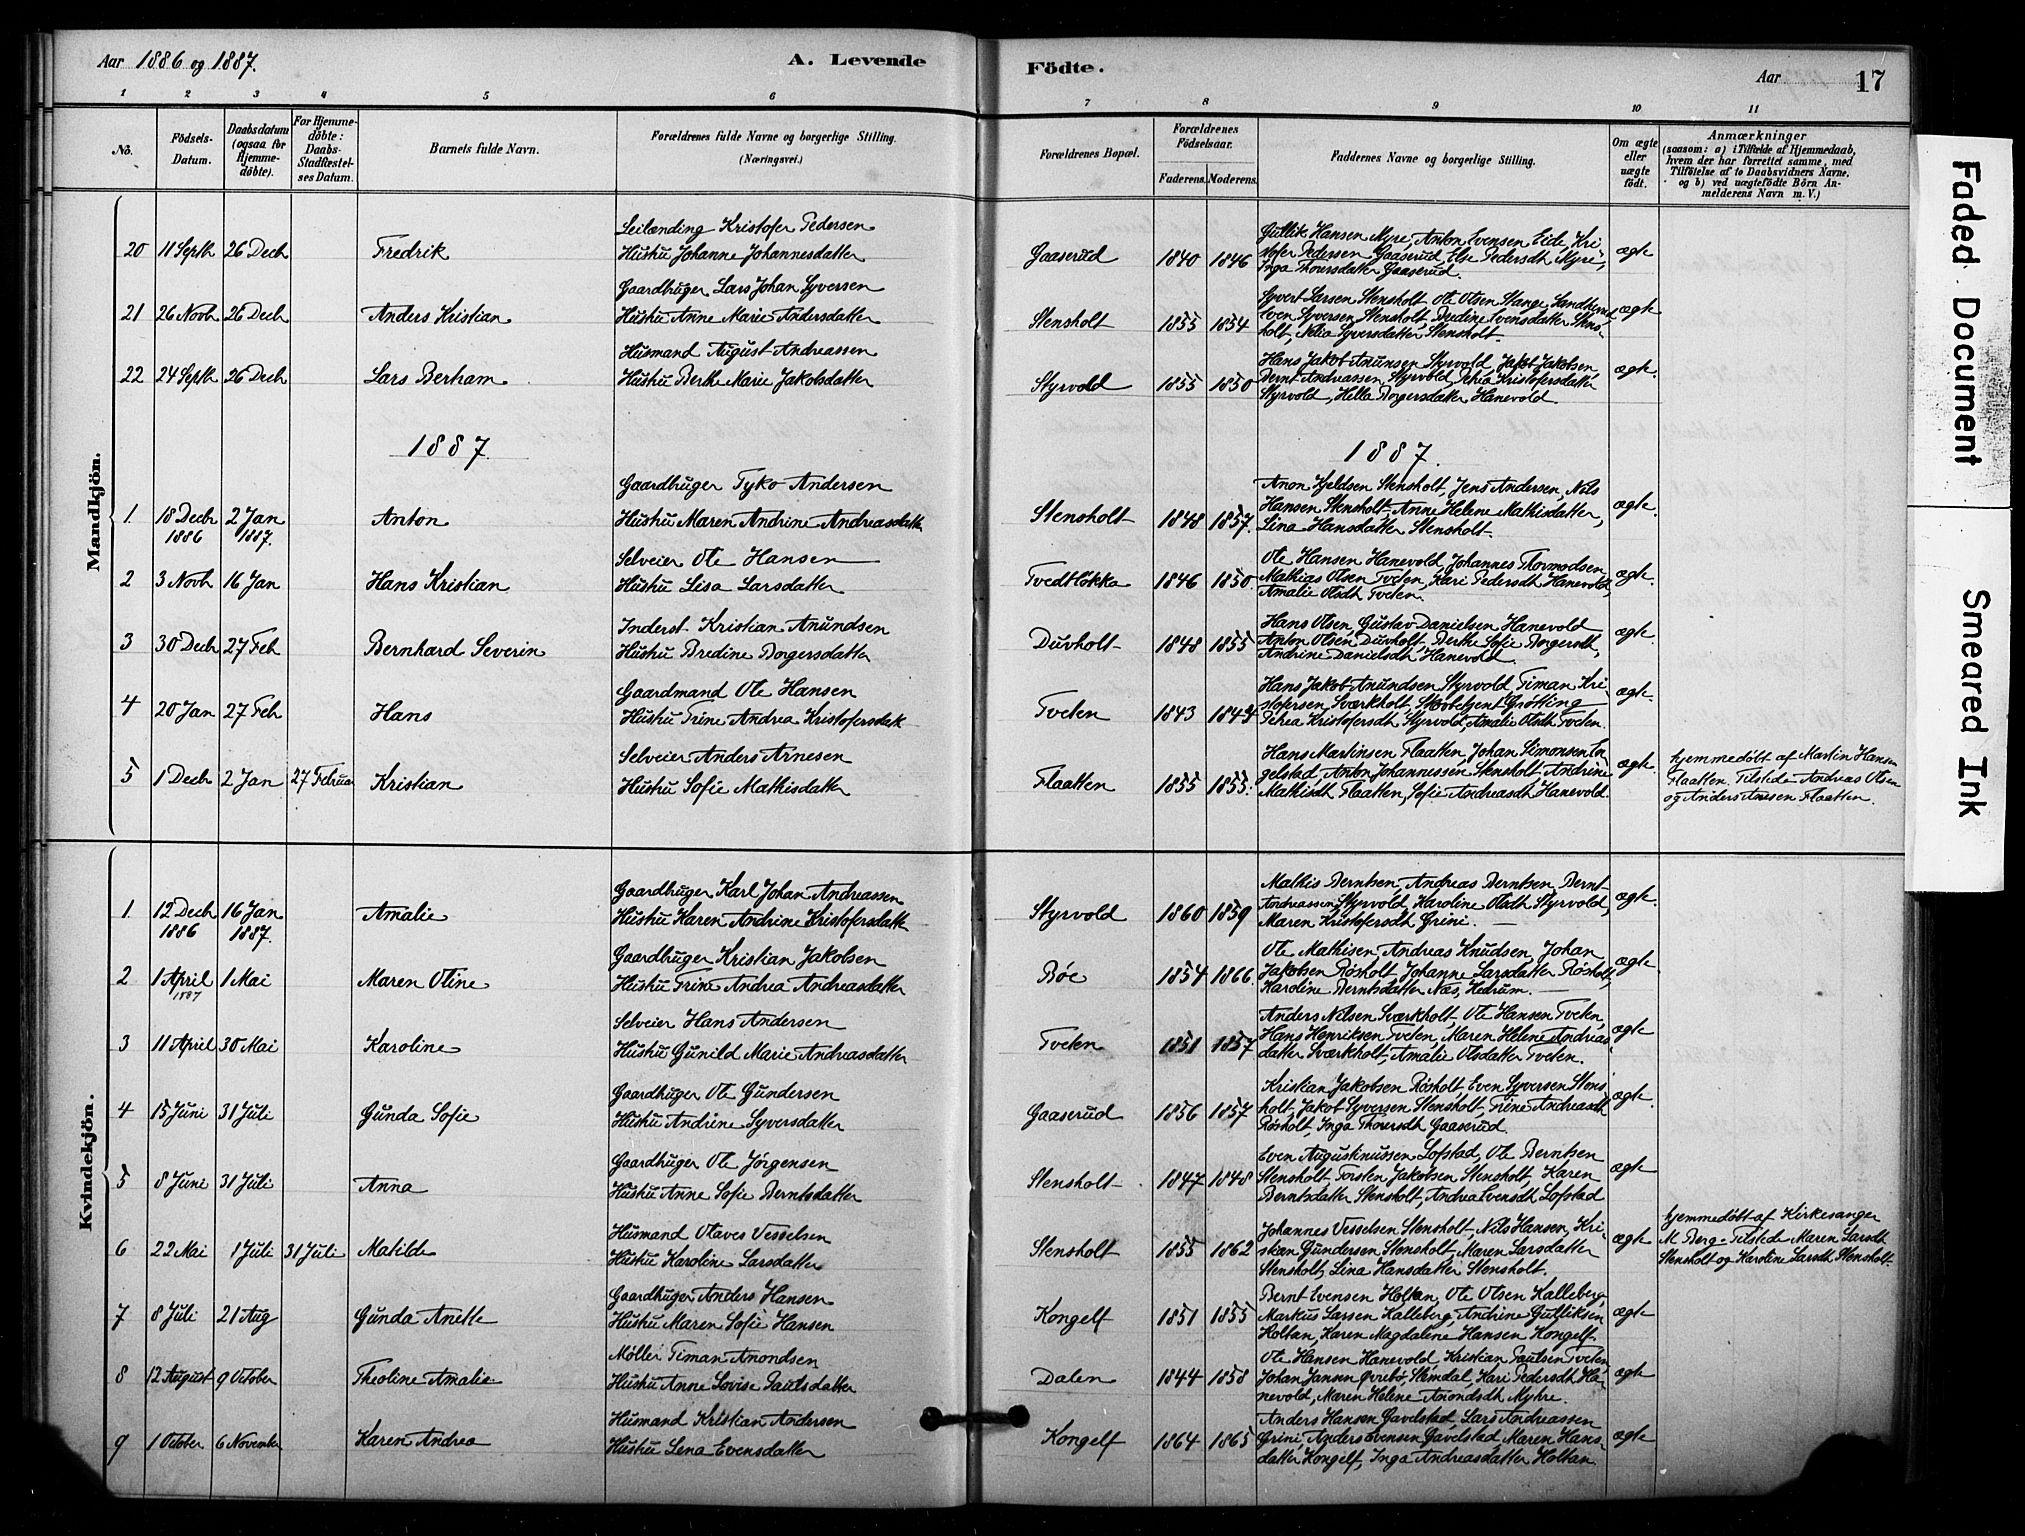 Aar 1886 og 1887. A. Levende Födte. Aar 17
1 2 3 4 5 6 7 8 9 10 11
No. Födsels-Datum. Daabsdatum (ogsaa for Hjemmedöbte). For Hjemmedöbte: Daabs-Stadfæstelses Datum. Barnets fulde Navn. Forældrenes fulde Navne og borgerlige Stilling. (Næringsvei.) Forældrenes Bopæl. Forældrenes Födselsaar. Faderens. Moderens. Faddernes Navne og borgerlige Stilling. Om ægte eller uægte födt. Anmærkninger (saasom: a) i Tilfælde af Hjemmedaab, hvem der har forrettet samme, med Tilföielse af to Daabsvidners Navne, og b) ved uægtefödte Börn Anmelderens Navn m. V.)
Mandkjön.
Leilending Kristofer Pedersen
20 11 Septb 26 Decb Fredrik Hustru Johanne Johannesdatter Gaaserud 1840 1846 ægte
Gullik Hansen Myre, Anton Evensen Eide, Kri-
stofer Pedersen Gaaserud, Else Pedersdt Myre,
Inga Thorsdatter Gaaserud.
Gaardbruger Lars Johan Syversen
21 26 Novb 26 Decb Anders Kristian Hustru Anne Marie Andersdatter Stensholt 1855 1854 ægte
Syvert Larsen Stensholt, Ole Olsen Stange, Sandherred
Even Syversen Stensholt, Bredine Evensdatter Stens-
holt, Nelia Syversdatter Stensholt.
Husmand August Andreassen
22 24 Septb 26 Decb Lars Berham Hustru Berthe Marie Jakobsdatter Styrvold 1855 1850 ægte.
Hans Jakob Anunsen Styrvold, Jakob Jakobsen
Bernt Andreassen, Styrvold, Petrea Kristofersdatter
Styrvold, Hella Borgersdatter Hanevold.
1887. 1887.
Gaardbruger Tyko Andersen
1. 18 Decb 1886 2 Jan 1887. Anton Hustru Maren Andrine Andreasdatter Stensholt 1848 1857. ægte.
Anon Kjeldsen Stensholt, Jens Andersen, Nils
Hansen Stensholt, Anne Helene Mathisdatter,
Lina Hansdatter Stensholt.
Selveier Ole Hansen
2 3 Novb 16 Jan Hans Kristian Hustru Lisa Larsdatter Tvedtløkka 1846 1850. ægte.
Ole Hansen Hanevold, Johannes Thormodsen,
Mathias Olsen Tveten, Kari Pedersdt Hanevold,
Amalie Olsdt Tveten.
Inderst Kristian Anundsen
3 30 Decb 27 Feb Bernhard Severin Hustru Bredine Borgersdatter Duvholt 1848 1855 ægte.
Hans Olsen, Gustav Danielsen Hanevold
Anton Olsen, Duvholt, Berthe Sofie Borgersdt,
Andrine Danielsdt Hanevold.
Gaardmand Ole Hansen
4 20 Jan 27 Feb Hans Hustru Trine Andrea Kristofersdatt Tveten 1843 1844 ægte.
Hans Jakob Anundsen Styrvold, Timan Kri-
stofersen, Sværkholt, Grøtting
Petrea Kristofersdt, Styrvold, Amalie Olsdt Tveten.
Selveier Anders Arnesen
5 1 Decb 2 Jan 27 Februar Kristian Hustru Sofie Mathisdatter Flaatten 1855 1855. ægte.
Hans Martinsen Flaatten, Johan Simonsen En-
gelstad, Anton Johannessen Stensholt, Andrine
Mathisdt Flaatten, Sofie Andreasdt Hanevold.
hjemmedøbt af Martin Hansen
Flaatten. Tilstede Andreas Olsen
og Anders Arnesen Flaatten.
Kvindekjön.
Gaardbruger Karl Johan Andreassen
1 12 Decb 1886 16 Jan 1887. Amalie Hustru Karen Andrine Kristofersdatte Styrvold 1860 1859 ægte.
Mathis Berntsen, Andreas Berntsen, Bernt
Andreassen, Styrvold, Karoline Olsdt Styrvold,
Maren Kristofersdt Grini.
Gaardbruger Kristian Jakobsen
2 1 April 1887 1 Mai Maren Oline Hustru Trine Andrea Andreasdatter Bøe 1854 1866. ægte.
Ole Mathisen, Andreas Knudsen, Johan
Jakobsen Røsholt, Johanne Larsdatter Røsholt,
Karoline Berntsdatter Næs, Hedrum.
Selveier Hans Andersen
3 11 April 30 Mai Karoline Hustru Gunild Marie Andreasdatter Tveten 1851 1857 ægte.
Anders Nilsen Sværkholt, Ole Hansen Tveten,
Hans Henriksen Tveten, Maren Helene Andreas-
datter Sværkholt, Amalie Olsdatter Tveten.
Gaardbruger Ole Gundersen
4 15 Juni 31 Juli Gunda Sofie Hustru Andrine Syversdatter Gaaserud 1856 1857 ægte.
Kristian Jakobsen Røsholt, Even Syversen Stens-
holt, Jakob Syversen Stensholt, Trine Andreasdt
Røsholt, Inga Thorsdt Gaaserud.
Gaardbruger Ole Jørgensen
5 8 Juni 31 Juli Anna Hustru Anne Sofie Berntsdatter Stensholt 1847 1848 ægte
Even Augustinussen Lofstad, Ole Berntsen
Stensholt, Torsten Jakobsen Stensholt, Karen
Berntsdatter Stensholt, Andrea Evensdt Lofstad
Husmand Olaves Vesselsen
6 22 Mai 1 Juli 31 Juli Matilde Hustru Karoline Larsdatter Stensholt 1855 1862 ægte
Johannes Vesselsen Stensholt, Nils Hansen, Kri-
stian Gundersen Stensholt, Maren Larsdatter
Stensholt, Lina Hansdatter Stensholt.
hjemmedøbt af Kirkesanger
M Berg - Tilstede Maren Larsdt
Stensholt og Karoline Larsdt Stensholt
Gaardbruger Anders Hansen
7 8 Juli 21 Aug Gunda Anette Hustru Maren Sofie Hansen Kongelf 1851 1855 ægte
Bernt Evensen Holtan, Ole Olsen Kalleberg,
Markus Larsen Kalleberg, Andrine Gulliksen
Holtan, Karen Magdalene Hansen Kongelf.
Møller Timan Anondsen
8 12 August 9 October Theoline Amalie Hustru Anne Lovise Paulsdatter Dalen 1844 1858 ægte
Ole Hansen Hanevold, Kristian Paulsen Tveten
Johan Jansen Øvrebø, Slemdal, Kari Pedersdt Ha-
nevold, Maren Helene Anondsdt Myhre.
Husmand Kristian Andersen
9 1 October 6 November Karen Andrea Hustru Lena Evensdatter Kongelf 1864 1865 ægte
Anders Hansen Gavelstad, Lars Andreassen
Grini, Anders Evensen Gavelstad, Maren Hans-
datter Kongelf, Inga Andreasdatter Holtan.
Faded Document
Smeared Ink